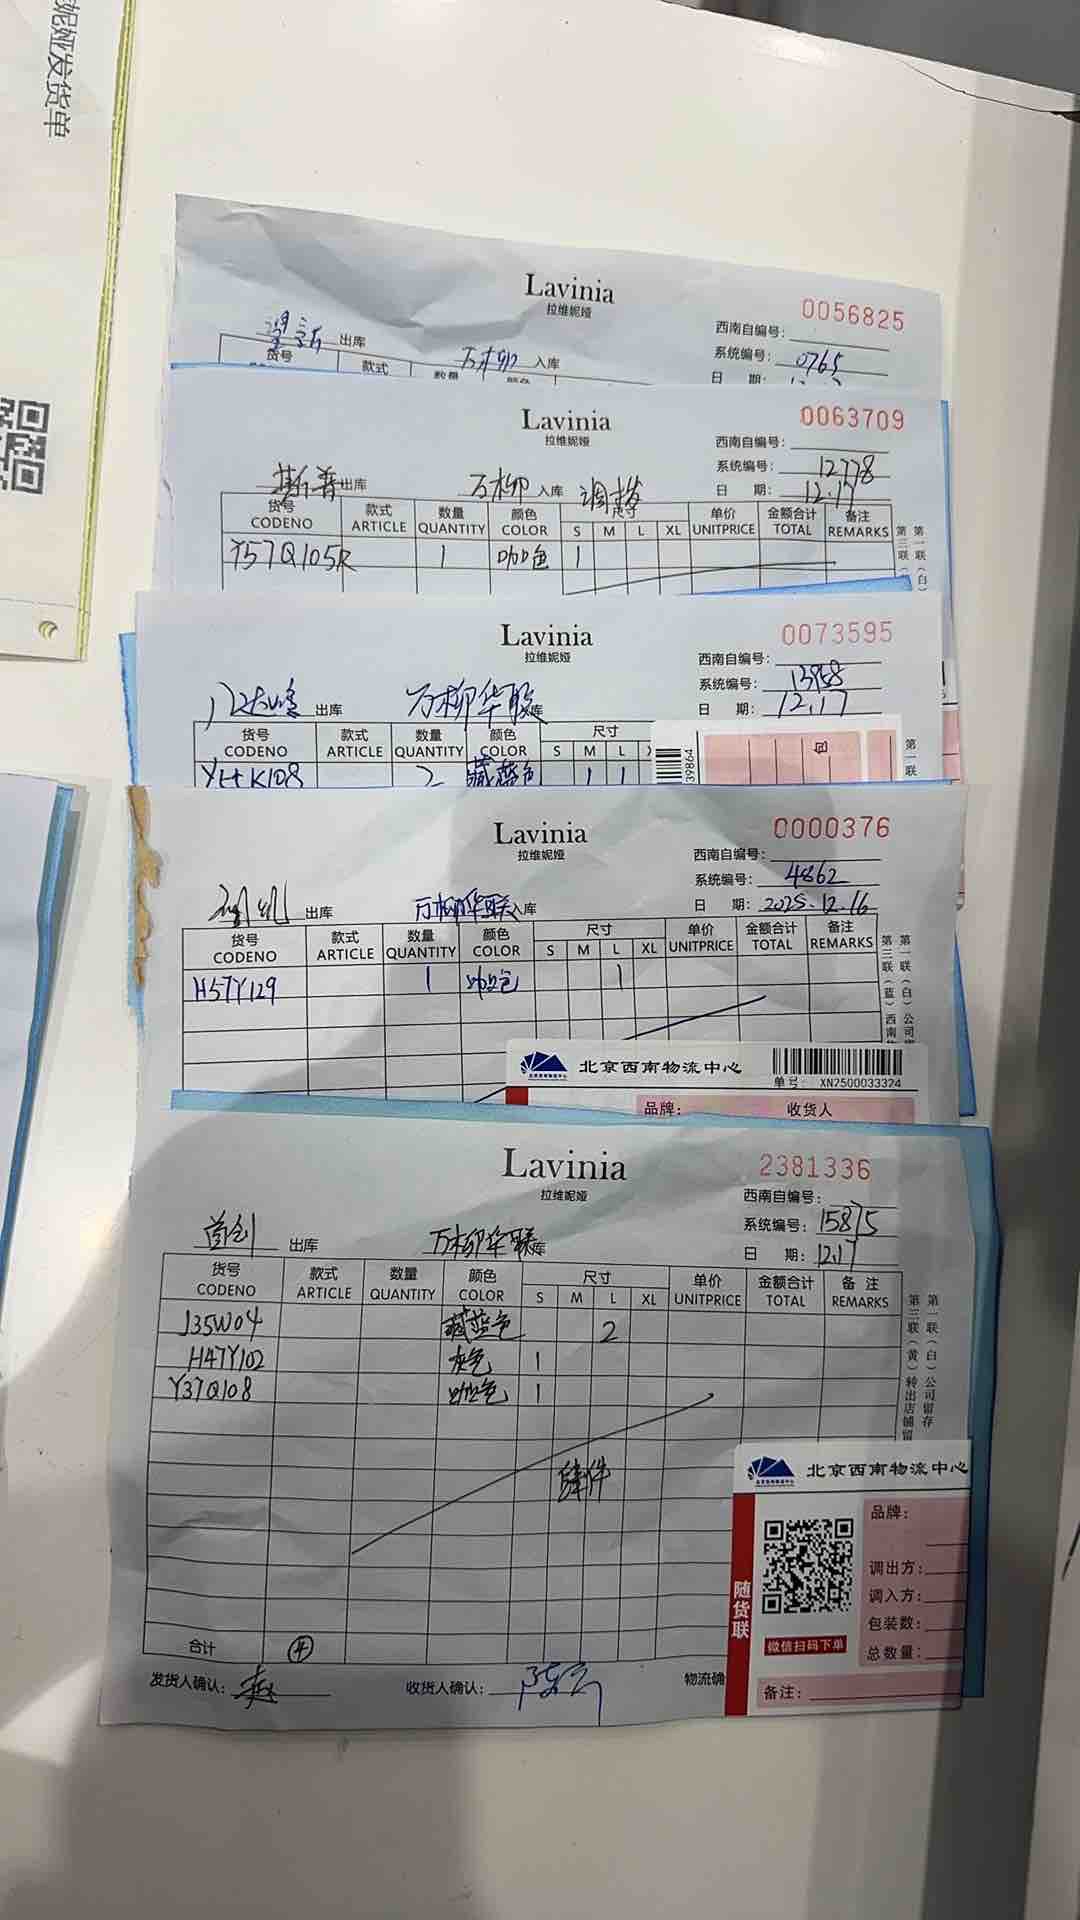 妮娅发货单
Lavinia
拉维妮娅
0056825
西南自编号:
系统编号: 0765
出库 万柳 入库
日 期:
货号 款式 数量 颜色
Lavinia
拉维妮娅
0063709
西南自编号:
系统编号: 12778
斯普 出库 万柳 入库 调拨
日 期: 12.17
货号 款式 数量 颜色 单价 金额合计 备注
CODENO ARTICLE QUANTITY COLOR S M L XL UNITPRICE TOTAL REMARKS
Y57Q105R 1 咖色 1
第一联(白)
第三联(
Lavinia
拉维妮娅
0073595
西南自编号:
系统编号: 13958
八达岭 出库 万柳华联
日 期: 12.17
货号 款式 数量 颜色 尺寸
CODENO ARTICLE QUANTITY COLOR S M L
YHK108 2 藏蓝色 1 1
39864
第一联
Lavinia
拉维妮娅
0000376
西南自编号:
系统编号: 4862
出库 万柳华联 入库
日 期: 2025.12.16
货号 款式 数量 颜色 尺寸 单价 金额合计 备注
CODENO ARTICLE QUANTITY COLOR S M L XL UNITPRICE TOTAL REMARKS
H57Y129 1 咖色 1
第一联(白)公司
第三联(蓝)西南
北京西南物流中心
单号: XN2500033324
品牌: 收货人
Lavinia
拉维妮娅
2381336
西南自编号:
系统编号: 15875
首创 出库 万柳华联 库
日 期: 12.17
货号 款式 数量 颜色 尺寸 单价 金额合计 备注
CODENO ARTICLE QUANTITY COLOR S M L XL UNITPRICE TOTAL REMARKS
J35W04 藏蓝色 2
H47Y102 灰色 1
Y37Q108 咖色 1
肆件
第一联(白)公司留存
第三联(黄)转出店铺留
合计 4
发货人确认: 收货人确认: 陈云 物流确
北京西南物流中心
随货联
微信扫码下单
品牌:
调出方:
调入方:
包装数:
总数量:
备注: